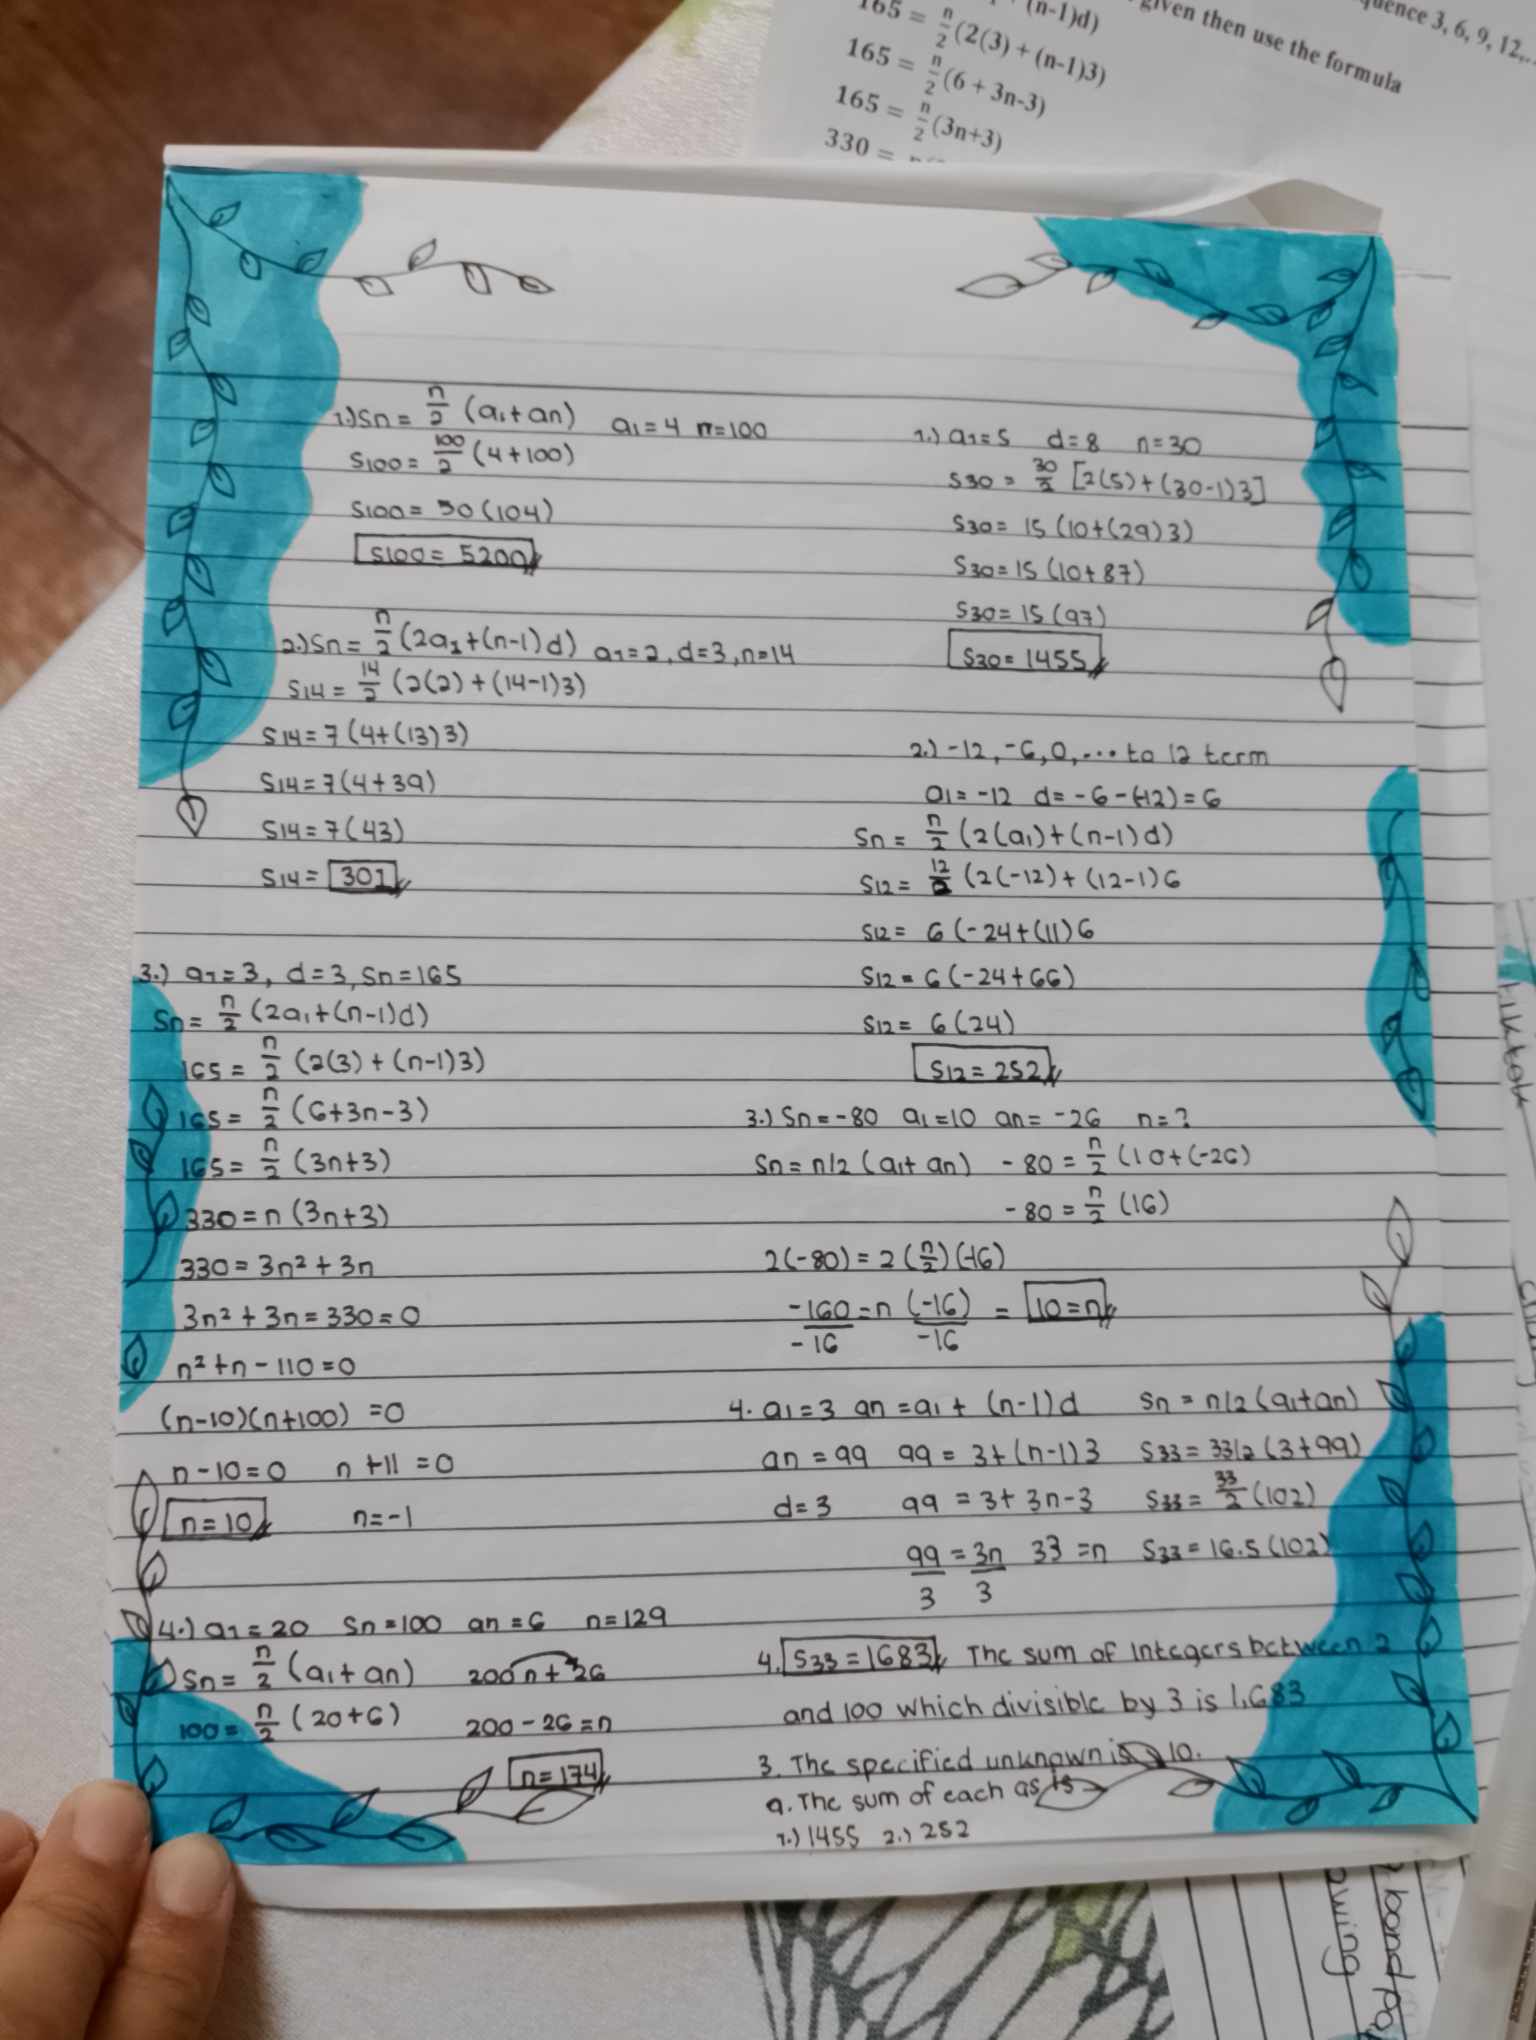 (n-1)d)
165 = n/2 (2(3) + (n-1)3)
165 = n/2 (6 + 3n-3)
165 = n/2 (3n+3)
330 =
given then use the formula
quence 3, 6, 9, 12,..
1.) Sn = n/2 (a1 + an) a1 = 4 n = 100
S100 = 100/2 (4 + 100)
S100 = 50 (104)
S100 = 5200
2.) Sn = n/2 (2a1 + (n-1) d) a1 = 2, d = 3, n = 14
S14 = 14/2 (2(2) + (14-1)3)
S14 = 7 (4 + (13) 3)
S14 = 7 (4 + 39)
S14 = 7 (43)
S14 = 301
3.) a1 = 3, d = 3, Sn = 165
Sn = n/2 (2a1 + (n-1)d)
165 = n/2 (2(3) + (n-1)3)
165 = n/2 (6+3n-3)
165 = n/2 (3n+3)
330 = n (3n+3)
330 = 3n² + 3n
3n² + 3n = 330 = 0
n² + n - 110 = 0
(n-10)(n+100) = 0
n - 10 = 0 n + 11 = 0
n = 10 n = -1
4.) a1 = 20 Sn = 100 an = 6 n = 129
Sn = n/2 (a1 + an) 200 n + 26
100 = n/2 (20+6) 200 - 26 = n
n = 174
1.) a1 = 5 d = 8 n = 30
S30 = 30/2 [2(5) + (30-1) 3]
S30 = 15 (10 + (29) 3)
S30 = 15 (10 + 87)
S30 = 15 (97)
S30 = 1455
2.) -12, -6, 0, ... to 12 term
a1 = -12 d = -6 - (-12) = 6
Sn = n/2 (2(a1) + (n-1) d)
S12 = 12/2 (2(-12) + (12-1) 6
S12 = 6 (-24 + (11) 6
S12 = 6 (-24 + 66)
S12 = 6 (24)
S12 = 252
3.) Sn = -80 a1 = 10 an = -26 n = ?
Sn = n/2 (a1 + an) -80 = n/2 (10 + (-26)
-80 = n/2 (16)
2(-80) = 2 (n/2) (-16)
-160/-16 = n (-16)/-16 = 10 = n
4. a1 = 3 an = a1 + (n-1) d Sn = n/2 (a1 + an)
an = 99 99 = 3 + (n-1) 3 S33 = 33/2 (3+99)
d = 3 99 = 3 + 3n - 3 S33 = 33/2 (102)
99/3 = 3n/3 33 = n S33 = 16.5 (102)
4. S33 = 1683 The sum of Integers between 2
and 100 which divisible by 3 is 1,683
3. The specified unknown is 10.
a. The sum of each as is
1.) 1455 2.) 252
tiktok
bond pa
owing